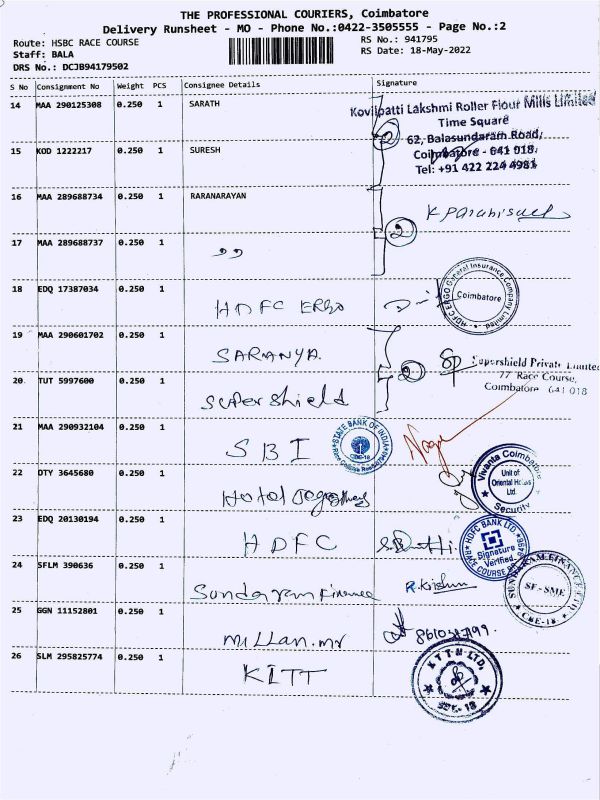 THE PROFESSIONAL COURIERS, Coimbatore
Delivery Runsheet - MO - Phone No.:0422-3505555 - Page No.:2
Route: HSBC RACE COURSE
RS No.: 941795
Staff: BALA
RS Date: 18-May-2022
DRS No.: DCJB94179502
S No Consignment No Weight PCS Consignee Details Signature
14 MAA 290125308 0.250 1 SARATH
Kovilpatti Lakshmi Roller Flour Mills Limited
Time Square
2
62, Balasundaram Road,
15 KOD 1222217 0.250 1 SURESH
Coimbatore - 641 018.
Tel: +91 422 224 4981
16 MAA 289688734 0.250 1 RARANARAYAN
2
17 MAA 289688737 0.250 1
18 EDQ 17387034 0.250 1 HDFC ERGO
HDFC ERGO General Insurance Company Limited
Coimbatore
19 MAA 290601702 0.250 1 SARANYA
2
Supershield Private Limited
77 Race Course,
Coimbatore 641 018
20 TUT 5997600 0.250 1 Supershield
21 MAA 290932104 0.250 1 SBI
STATE BANK OF INDIA
Vivanta Coimbatore
Unit of
Oriental Hotels
Ltd.
Security
22 DTY 3645680 0.250 1 Hotel
23 EDQ 20130194 0.250 1 HDFC
HDFC BANK LTD.
Signature
Verified
RACE COURSE
24 SFLM 390636 0.250 1 Sundaram Finance
R.Krishna
SUNDARAM FINANCE LTD
SF-SME
CBE-18
25 GGN 11152801 0.250 1 Millan.mr
26 SLM 295825774 0.250 1 KITT
K T T M LTD.